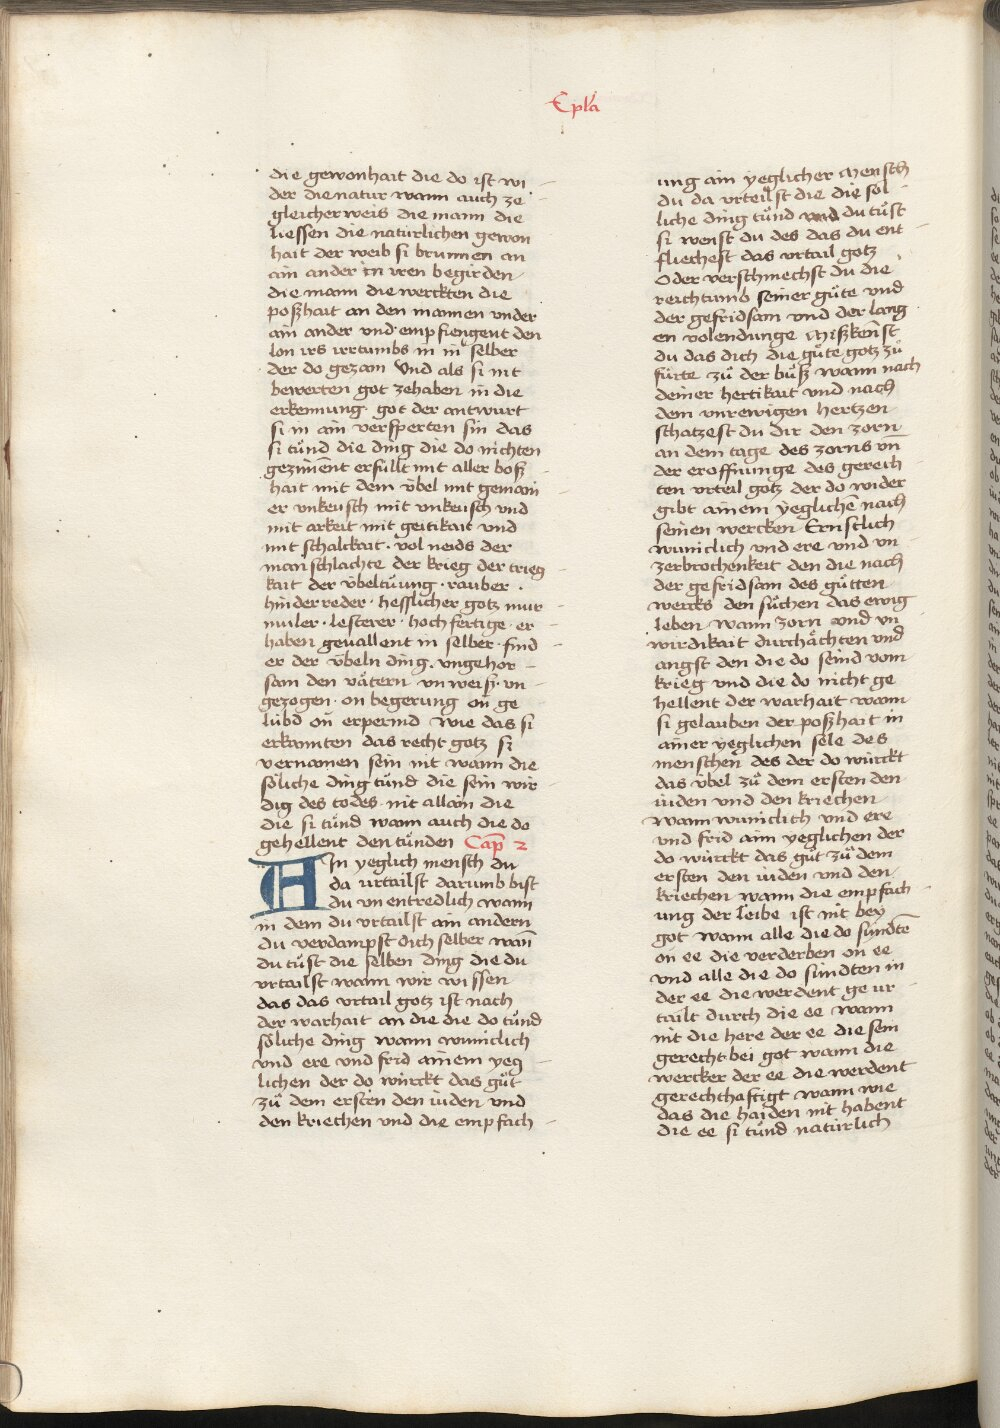 Epla
die gewonhait die do ist wi
der die natur wann auch ze
gleicher weis die mann die
liessen die naturlichen gewon
hait der weib si brunnen an
ain ander in iren begirden
die mann die werckten die
poßhait an den mannen vnder
ain ander vnd empfiengent den
lon irs irrtumbs in in selber
der do gezam Vnd als si nit
bewerten got zehaben in die
erkennung got der antwurt
si in ain versperten sin das
si tůnd die ding die do nichten
geziment erfullt mit aller boß
hait mit dem v̈bel mit gemain
er vnkeusch mit vnkeusch vnd
mit arkeit mit geitikait vnd
mit schalckait · vol neids der
manschlachte der krieg der trieg
kait der v̈beltůung · rauber ·
hinderreder · hesslicher gotz mur
muler · lesterer · hochfertige · er
haben geuallent in selber · find
er der v̈beln ding · vngehor
sam den vätern · vnweiß · vn
gezogen · on begerung on̄ ge
lübd on̄ erpermd wie das si
erkannten das recht gotz si
vernamen sein nit wann die
söliche ding tůnd die sein wir
dig des todes · nit allain die
die si tůnd wann auch die do
gehellent den tůnden Cap̄ 2
AIn yeglich mensch du
da urtailst darumb bist
du vnentredlich wann
in dem du vrtailst ain andern
du verdampst dich selber wan̄
du tůst die selben ding die du
vrtailst wann wir wissen
das das vrtail gotz ist nach
der warhait an die die do tůnd
söliche ding wann wuniclich
vnd ere vnd frid ainem yeg
lichen der do würckt das gůt
zů dem ersten den iuden vnd
den kriechen vnd die empfach
ung ain yeglicher Mensch
du da vrteilst die die söl
liche ding tůnd vnd du tůst
si wenst du des das du ent
fliechest das vrtail gotz
Oder verschmechst du die
reichtumb seiner gůte vnd
der gefridsam vnd der lang
en volendunge Mißkenst
du das dich die gůte gotz zů
fürte zů der bůß wann nach
deiner hertikait vnd nach
dem vnrewigen hertzen
schatzest du dir den zorn
an dem tage des zorns vn̄
der eroffnunge des gerech
ten vrteil gotz der do wider
gibt ainem yeglichen̄ nach
seinen wercken Ernstlich
wuniclich vnd ere vnd vn
zerbrochenkeit den die nach
der gefridsam des gůtten
wercks den sůchen das ewig
leben wann zorn vnd vn
wirdikait durchächten vnd
angst den die do seind vom
krieg vnd die do nicht ge
hellent der warhait wann
si gelauben der poßhait in
ainer yeglichen sele des
menschen des der do würckt
das v̈bel zů dem ersten den
iuden vnd den kriechen
wann wuniclich vnd ere
vnd frid aim yeglichen der
do würckt das gůt zů dem
ersten den iuden vnd den
kriechen wann die empfach
ung der leibe ist nit bey
got wann alle die do sündte̅
on ee die verderben on ee
vnd alle die do sündten in
der ee die werdent ge ur
tailt durch die ee wann
nit die here der ee die sein
gerecht bei got wann die
wercker der ee die werdent
gerechthaftigt wann wie
das die haiden nit habent
die ee si tůnd natürlich